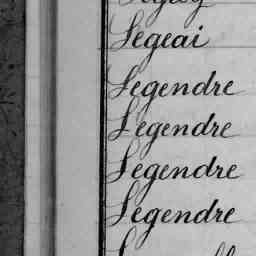 Legeai
Legendre
Legendre
Legendre
Legendre